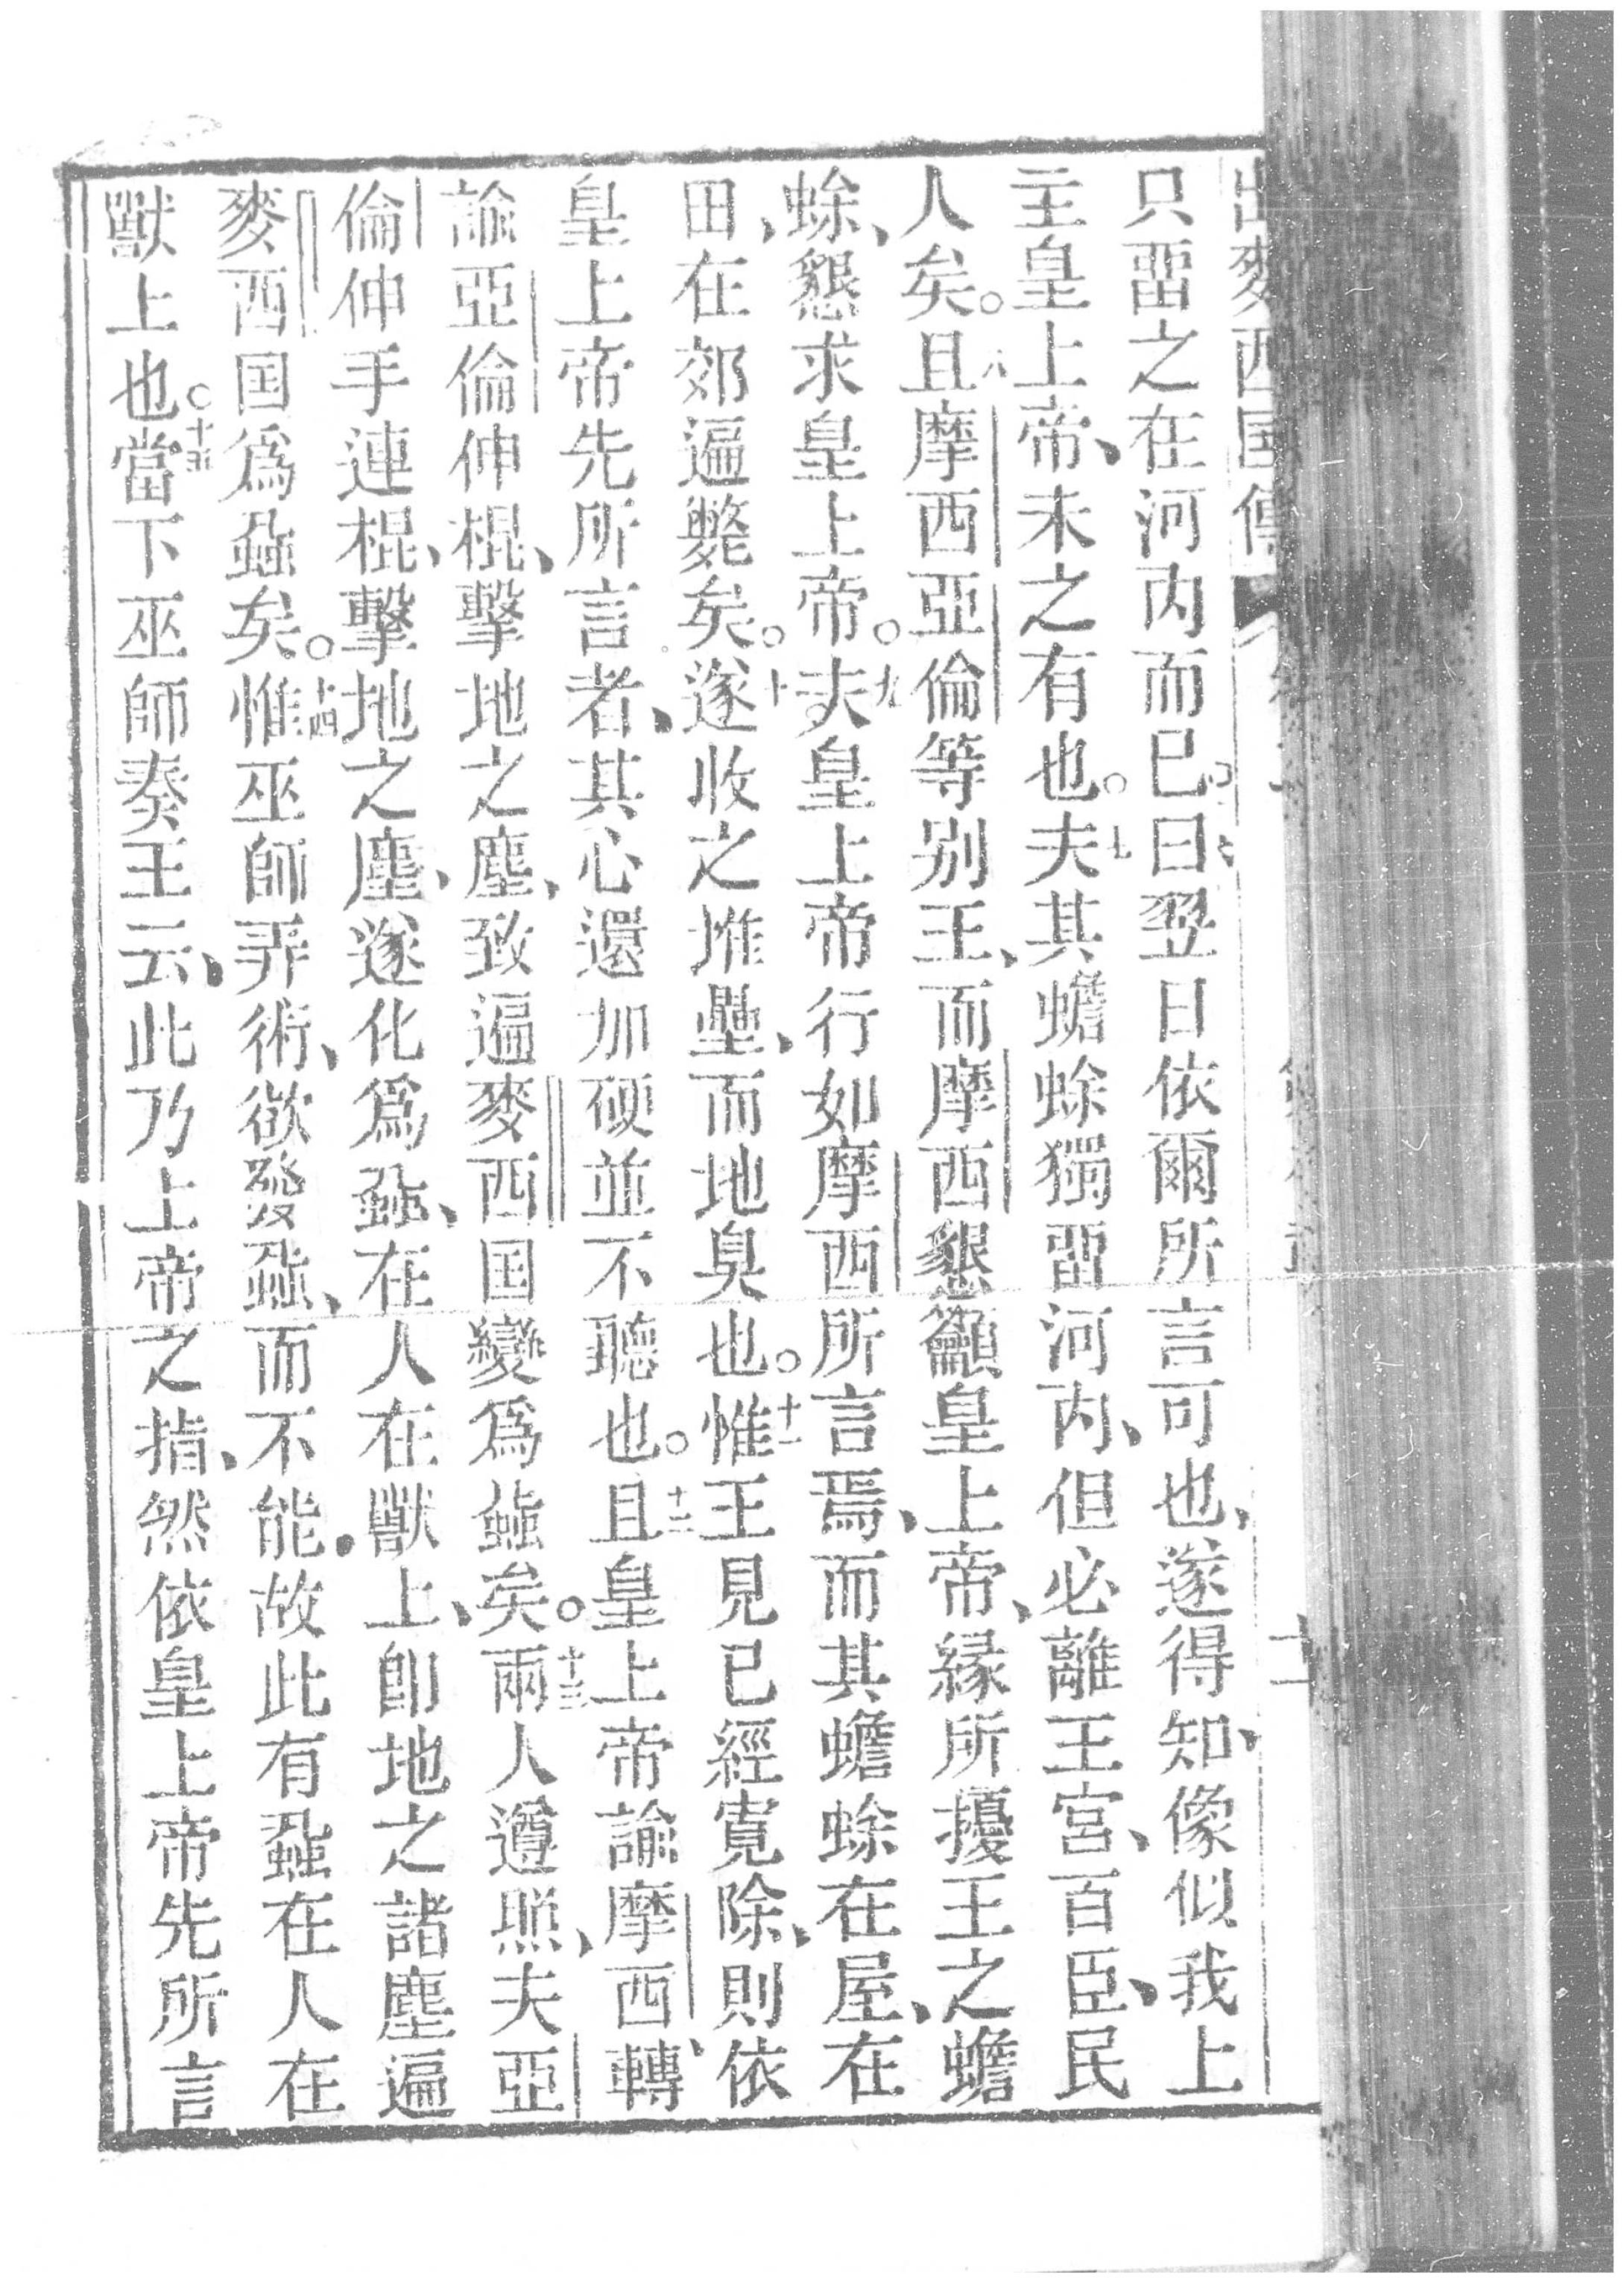 出麥西国傳
只畱之在河内而已。曰翌日依爾所言可也、遂得知、像似我上
主皇上帝、未之有也。七夫其蟾蜍獨畱河内、但必離王宮、百臣、民
人矣。八且摩西亞倫等别王、而摩西懇籲皇上帝、緣所擾王之蟾
蜍、懇求皇上帝。九夫皇上帝行如摩西所言焉、而其蟾蜍在屋、在
田、在郊遍斃矣。十遂收之堆壘、而地臭也。十一惟王見已經寬除、則依
皇上帝先所言者、其心還加硬並不聽也。十二且皇上帝諭摩西、轉
諭亞倫伸棍、擊地之塵、致遍麥西国變爲蝨矣。十三兩人遵照、夫亞
倫伸手連棍、擊地之塵、遂化爲蝨、在人在獸上、卽地之諸塵遍
麥西国爲蝨矣。十四惟巫師弄術、欲發蝨、而不能、故此有蝨在人在
獸上也。十五當下巫師奏王云、此乃上帝之指、然依皇上帝先所言